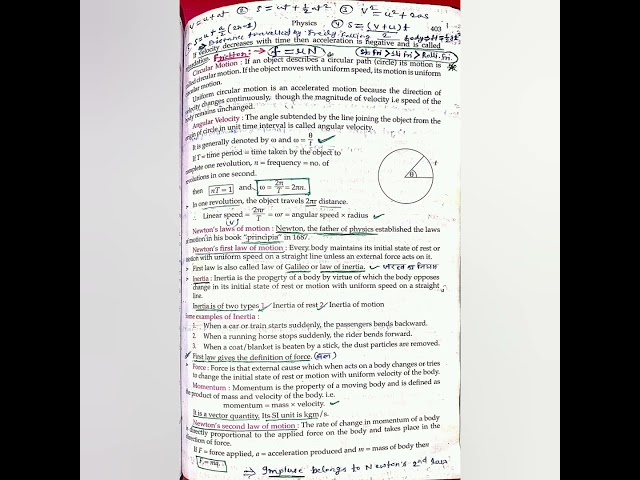 v = u + at ② s = ut + ½ at² ③ v² = u² + 2as
Physics ④ s = (v+u)t / 2 403
s = u + a/2 (2n-1)
Distance travelled by freely falling body
If velocity decreases with time then acceleration is negative and is called
retardation. Friction:- → f = μN St. Fri > Sli Fri > Rolli. Fri.
Circular Motion : If an object describes a circular path (circle) its motion is
called circular motion. If the object moves with uniform speed, its motion is uniform
circular motion.
Uniform circular motion is an accelerated motion because the direction of
velocity changes continuously, though the magnitude of velocity i.e speed of the
body remains unchanged.
Angular Velocity : The angle subtended by the line joining the object from the
origin of circle in unit time interval is called angular velocity.
It is generally denoted by ω and ω = θ/t
If T = time period = time taken by the object to
complete one revolution, n = frequency = no. of
revolutions in one second.
then nT = 1 and ω = 2π/T = 2πn.
t
θ
In one revolution, the object travels 2πr distance.
∴ Linear speed = 2πr/T = ωr = angular speed × radius
(v)
Newton's laws of motion : Newton, the father of physics established the laws
of motion in his book "principia" in 1687.
Newton's first law of motion : Every body maintains its initial state of rest or
motion with uniform speed on a straight line unless an external force acts on it.
First law is also called law of Galileo or law of inertia. जड़त्व का नियम
Inertia : Inertia is the property of a body by virtue of which the body opposes
change in its initial state of rest or motion with uniform speed on a straight
line.
Inertia is of two types 1. Inertia of rest 2. Inertia of motion
Some examples of Inertia :
1. When a car or train starts suddenly, the passengers bends backward.
2. When a running horse stops suddenly, the rider bends forward.
3. When a coat/blanket is beaten by a stick, the dust particles are removed.
First law gives the definition of force. (बल)
Force : Force is that external cause which when acts on a body changes or tries
to change the initial state of rest or motion with uniform velocity of the body.
Momentum : Momentum is the property of a moving body and is defined as
the product of mass and velocity of the body. i.e.
momentum = mass × velocity.
It is a vector quantity. Its SI unit is kgm/s.
Newton's second law of motion : The rate of change in momentum of a body
is directly proportional to the applied force on the body and takes place in the
direction of force.
If F = force applied, a = acceleration produced and m = mass of body then
F = ma.
⇒ Impluse belongs to Newton's 2nd law